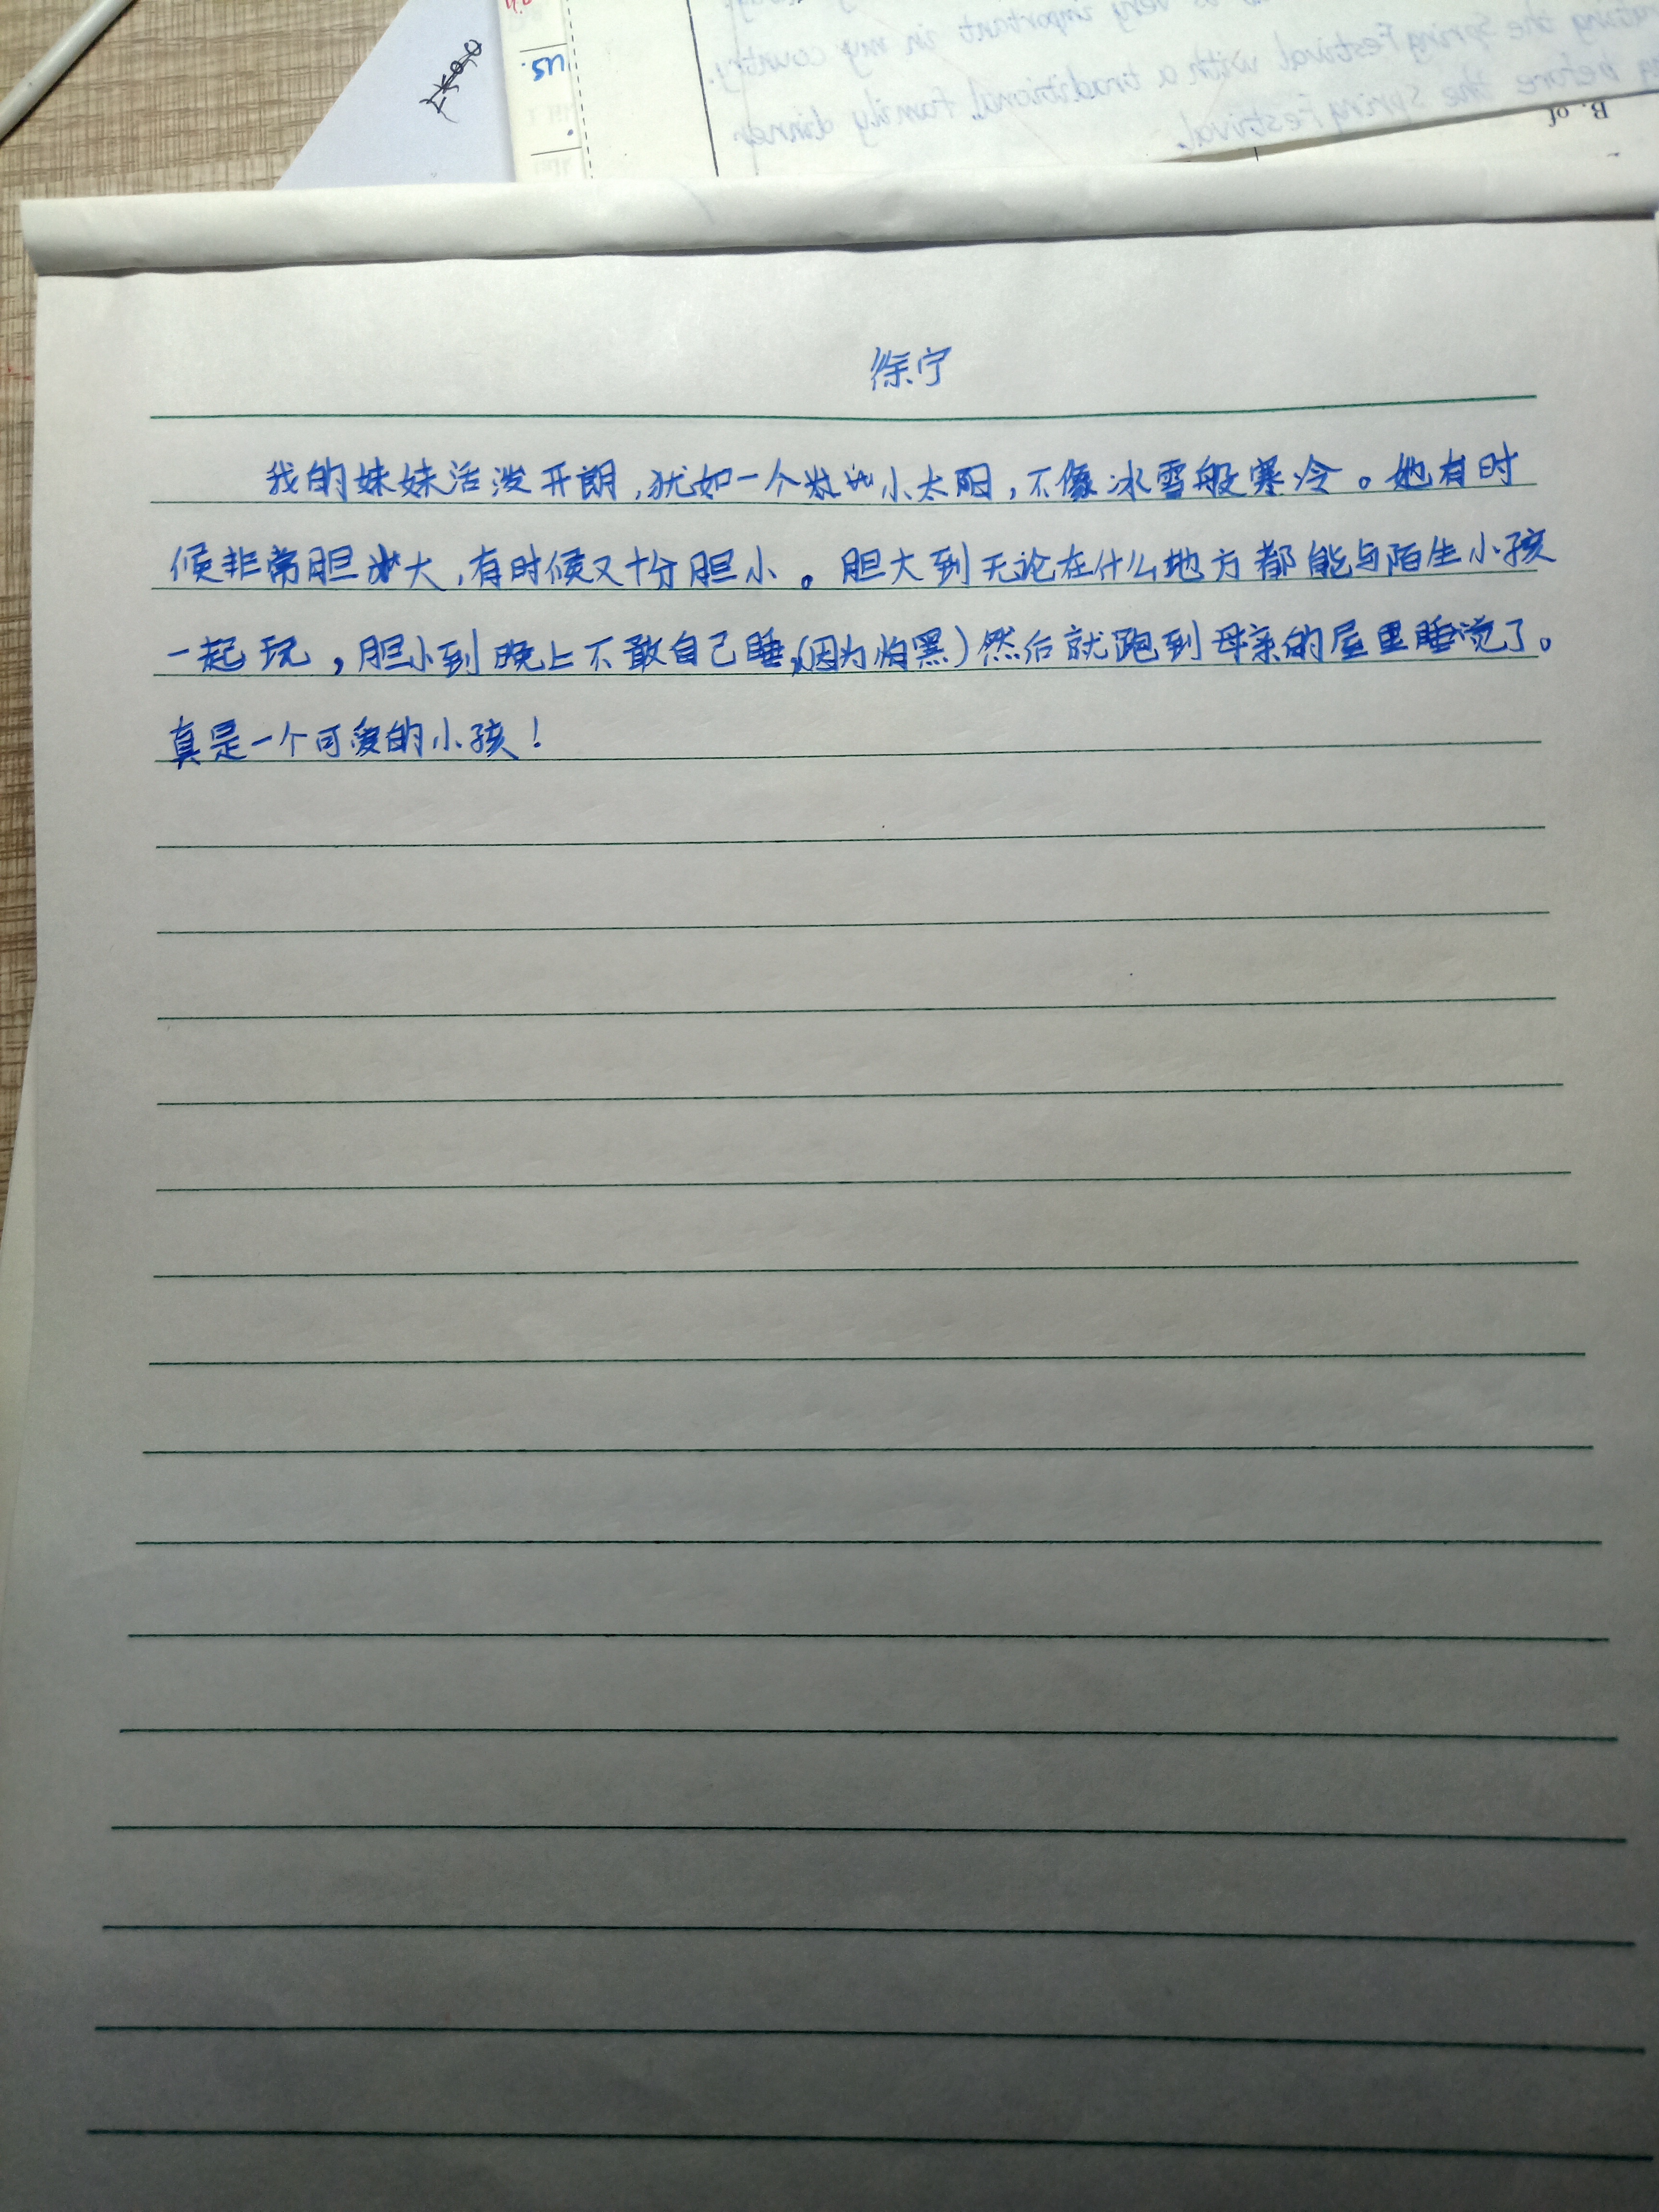 us.
is very important in my country.
rating the Spring Festival with a traditional family dinner
g before the Spring Festival.
B. of
徐宁
我的妹妹活泼开朗，犹如一个小太阳，不像冰雪般寒冷。她有时
候非常胆大，有时候又十分胆小。胆大到无论在什么地方都能与陌生小孩
一起玩，胆小到晚上不敢自己睡，(因为怕黑)然后就跑到母亲的屋里睡觉了。
真是一个可爱的小孩！